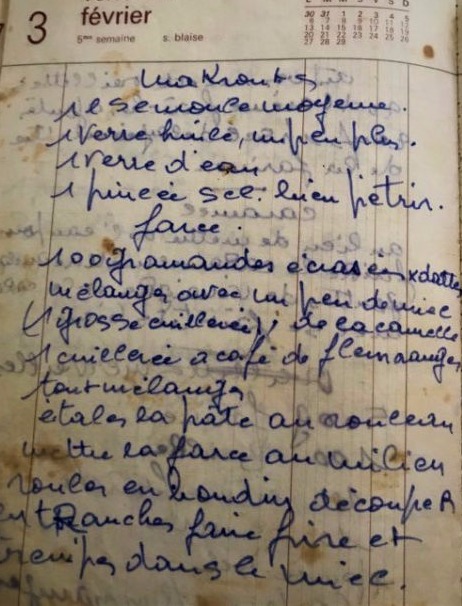 3
février
5me semaine
s. blaise
L M M J V S D
30 31 1 2 3 4 5
6 7 8 9 10 11 12
13 14 15 16 17 18 19
20 21 22 23 24 25 26
27 28 29
Makrouts
1 k semoule moyenne.
1 verre huile, un peu plus.
1 verre d'eau
1 pincée sel. bien pétrir.
farce.
100 gr amandes écrasées x dattes
mélanges avec un peu de miel
(1 grosse cuillerée), de la canelle
1 cuillerée à café de fleur oranges
tout mélanges
étales la pâte au rouleau
mettre la farce au milieu
roules en boudin, découper
en tranches faire frire et
tremper dans le miel.